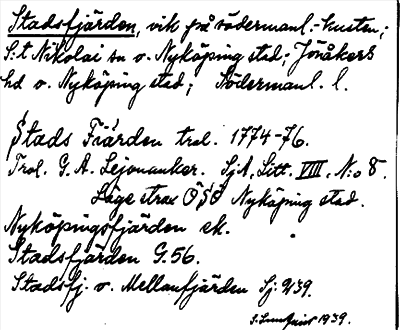 Stadsfjärden, vik på södermanl.-kusten;
S:t Nikolai sn o. Nyköping stad; Jönåkers
hd o. Nyköping stad; Södermanl. l.
Stads Fiärden trol. 1774-76.
Trol. G. A. Lejonanker. SjA, Litt. VIII, N:o 8.
Läge strax OSO Nyköping stad.
Nyköpingsfjärden ek.
Stadsfjärden G.56.
Stadsfj. o. Mellanfjärden Sj.
1939.